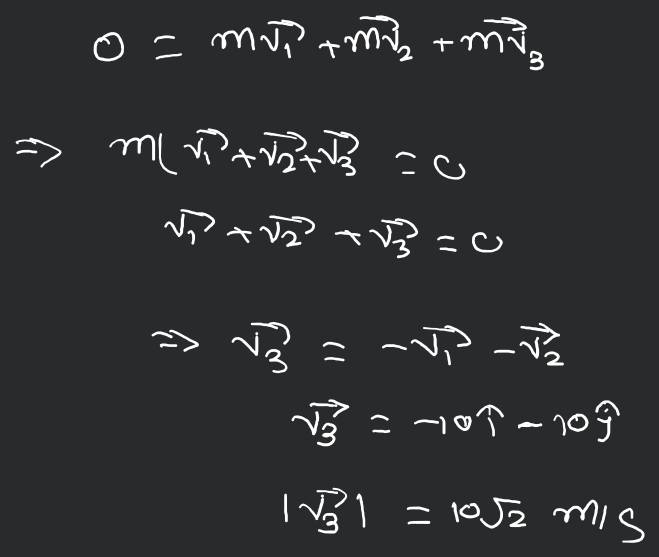 0 = m𝑣⃗₁ + m𝑣⃗₂ + m𝑣⃗₃
⇒ m( 𝑣⃗₁ + 𝑣⃗₂ + 𝑣⃗₃ = 0
𝑣⃗₁ + 𝑣⃗₂ + 𝑣⃗₃ = 0
⇒ 𝑣⃗₃ = -𝑣⃗₁ - 𝑣⃗₂
𝑣⃗₃ = -10î - 10ĵ
|𝑣⃗₃| = 10√2 m/s